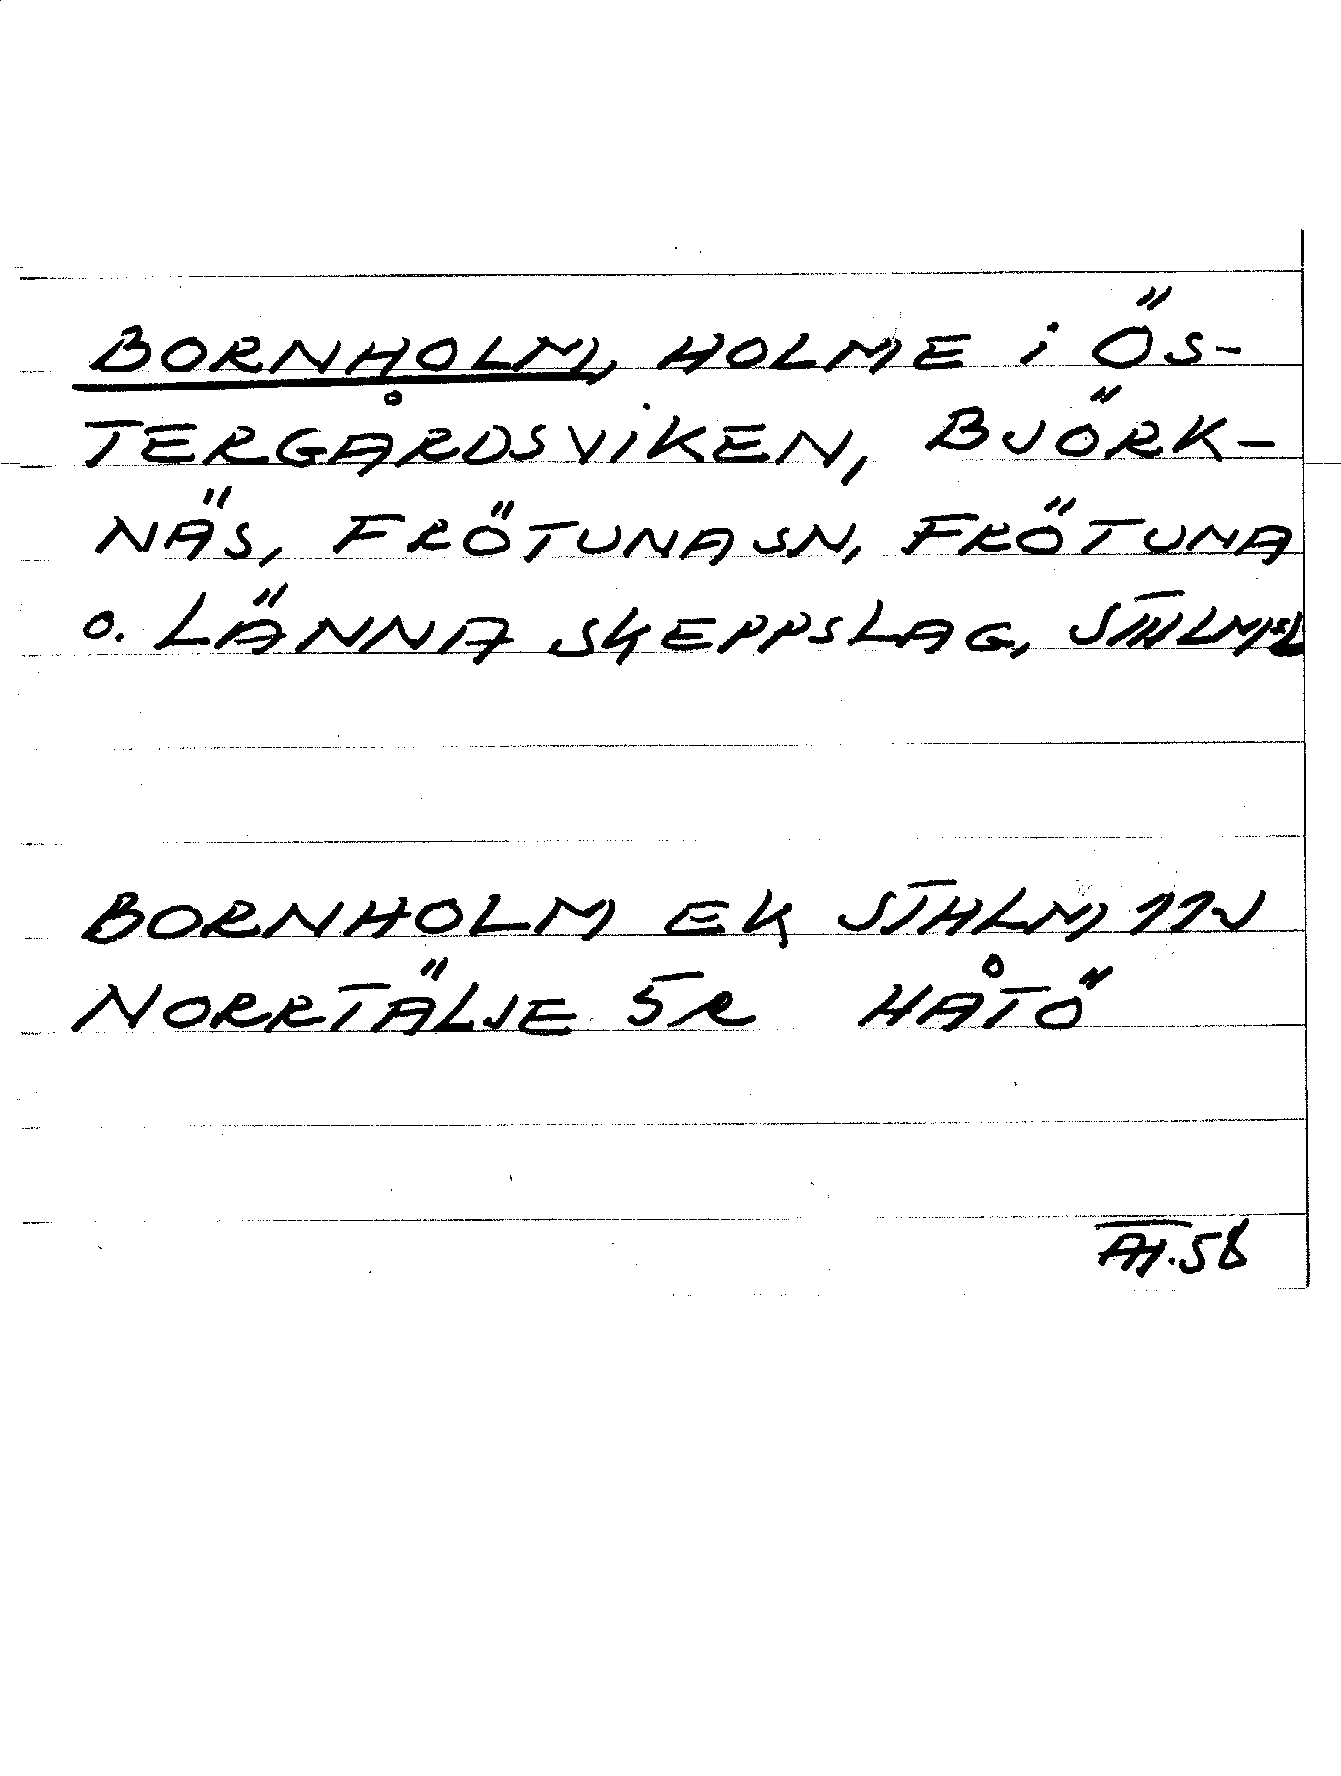 BORNHOLM, HOLME i ÖS-
TERGÅRDSVIKEN, BJÖRK-
NÄS, FRÖTUNA SN, FRÖTUNA
o. LÄNNA SKEPPSLAG, STHLMSL
BORNHOLM EK STHLM 11J
NORRTÄLJE 5R HÅTÖ
58